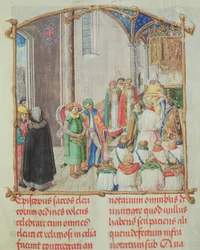 Episcopus sacros cleri
corum ordines volens
celebrare cum omnes
clerici et religiosi in
fuerint congregati
notarium omnibus de
nuntiare quod nullus
habens seu patiens ali
quem defectum infra
notatum sub